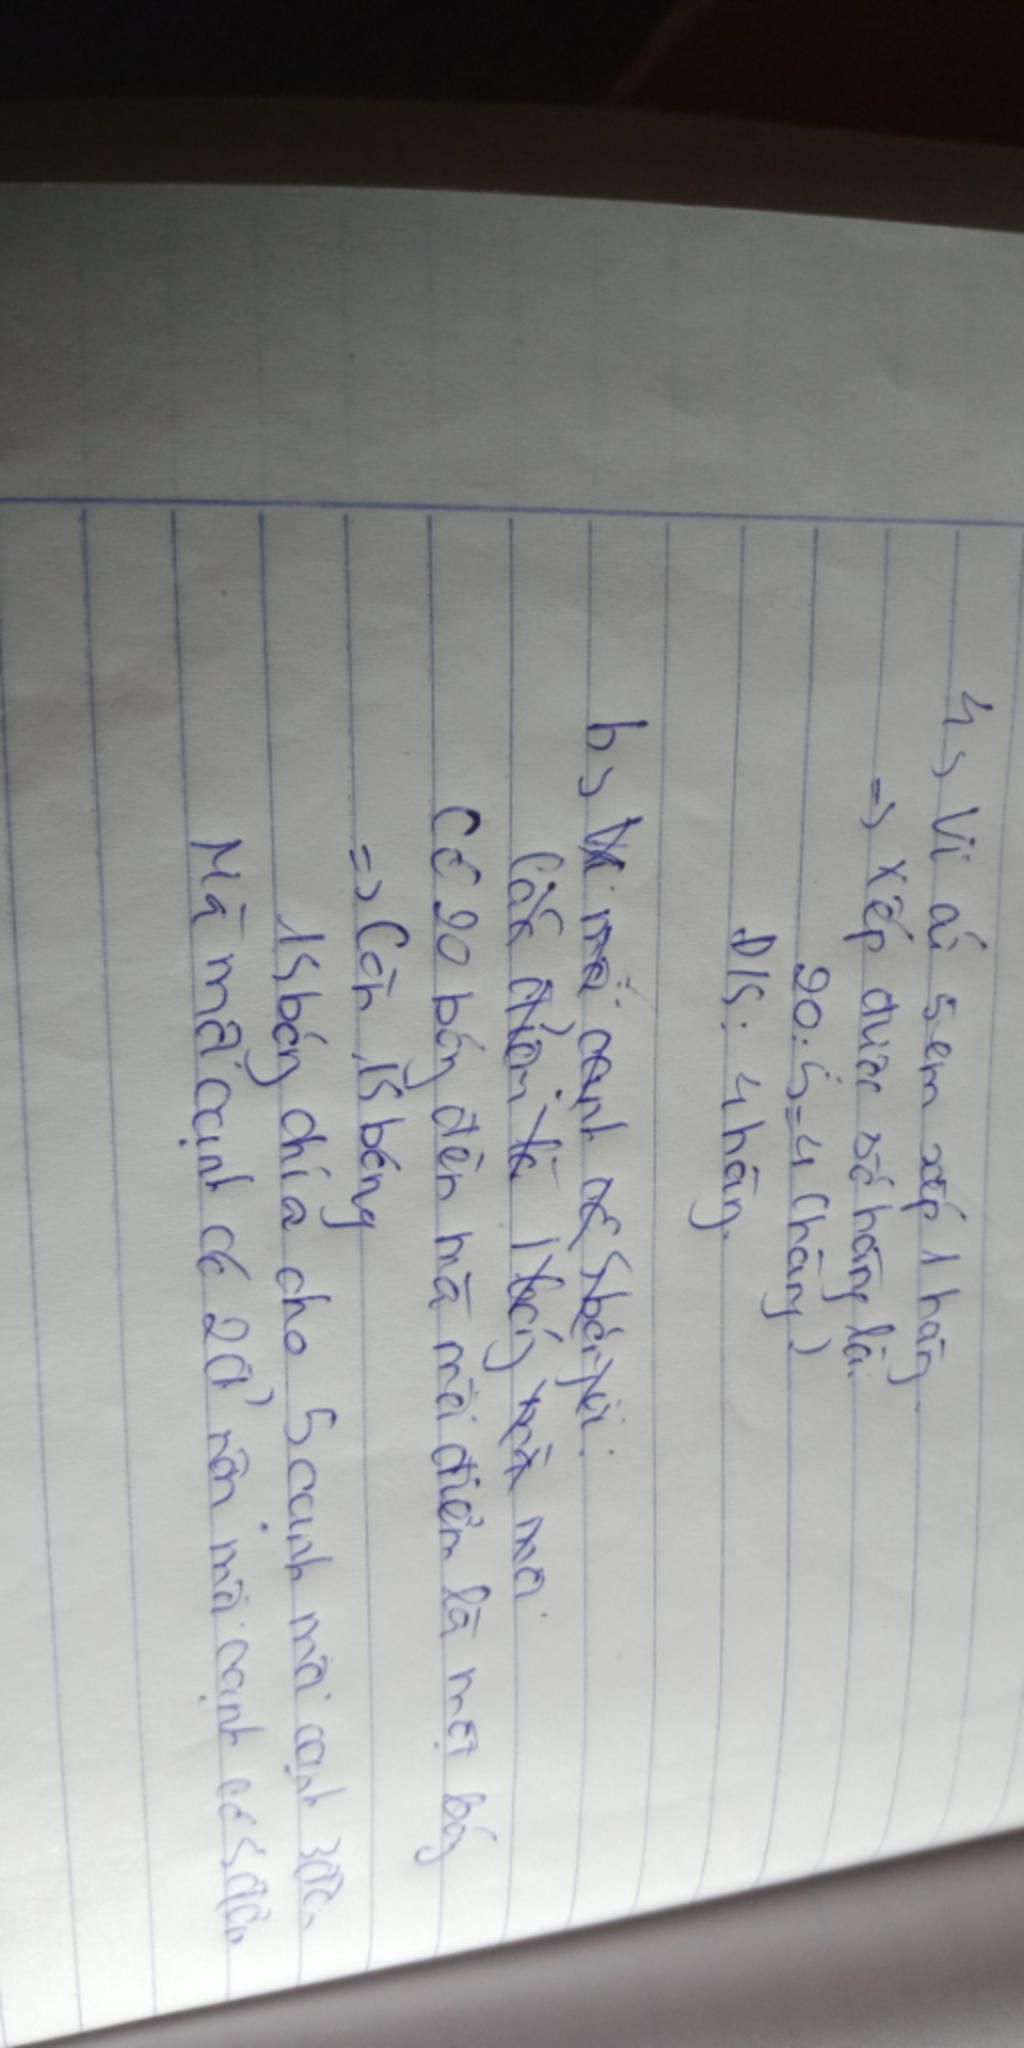 4> Vì cứ 5 em xếp 1 hàng.
=> xếp được số hàng là:
20:5=4 (hàng)
Đ/S: 4 hàng.
b> Vì mỗi cạnh có 5 bóng
Các điểm là 1 bóng mà mỗi
Có 20 bóng đèn mà mỗi điểm là một bóng
=> Còn 15 bóng
15 bóng chia cho 5 cạnh mỗi cạnh 3 đèn
Mà mỗi cạnh có 2 đ' nên mỗi cạnh có 5 đèn